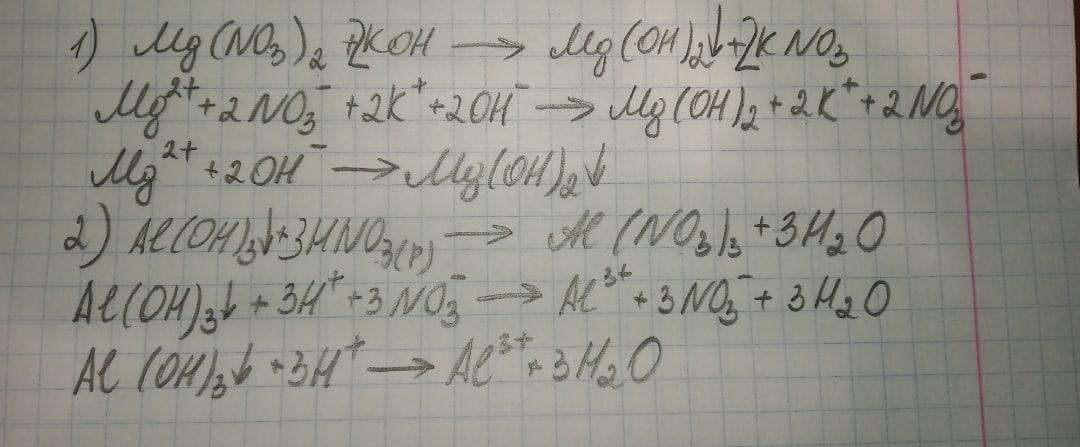 1) Mg(NO₃)₂ + 2KOH ⟶ Mg(OH)₂↓ + 2KNO₃
Mg²⁺ + 2NO₃⁻ + 2K⁺ + 2OH⁻ ⟶ Mg(OH)₂ + 2K⁺ + 2NO₃⁻
Mg²⁺ + 2OH⁻ ⟶ Mg(OH)₂↓
2) Al(OH)₃↓ + 3HNO₃(р) ⟶ Al(NO₃)₃ + 3H₂O
Al(OH)₃↓ + 3H⁺ + 3NO₃⁻ ⟶ Al³⁺ + 3NO₃⁻ + 3H₂O
Al(OH)₃↓ + 3H⁺ ⟶ Al³⁺ + 3H₂O